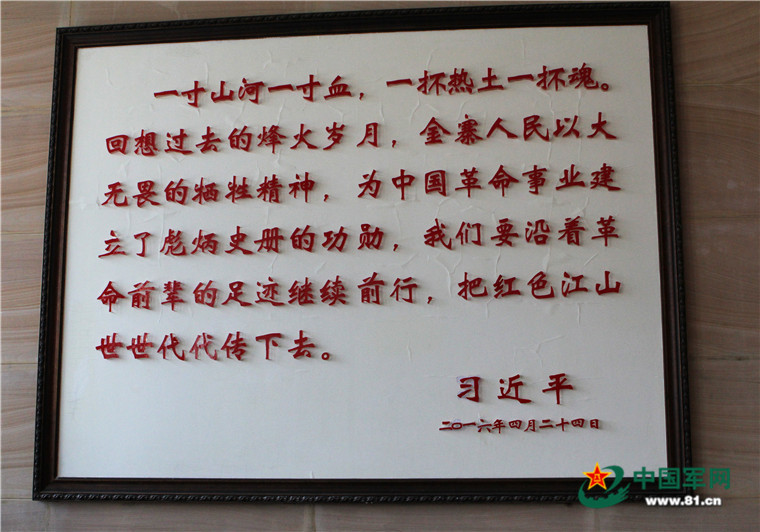 一寸山河一寸血，一抔热土一抔魂。
回想过去的烽火岁月，金寨人民以大
无畏的牺牲精神，为中国革命事业建
立了彪炳史册的功勋，我们要沿着革
命前辈的足迹继续前行，把红色江山
世世代代传下去。
习近平
二〇一六年四月二十四日
中国军网
www.81.cn